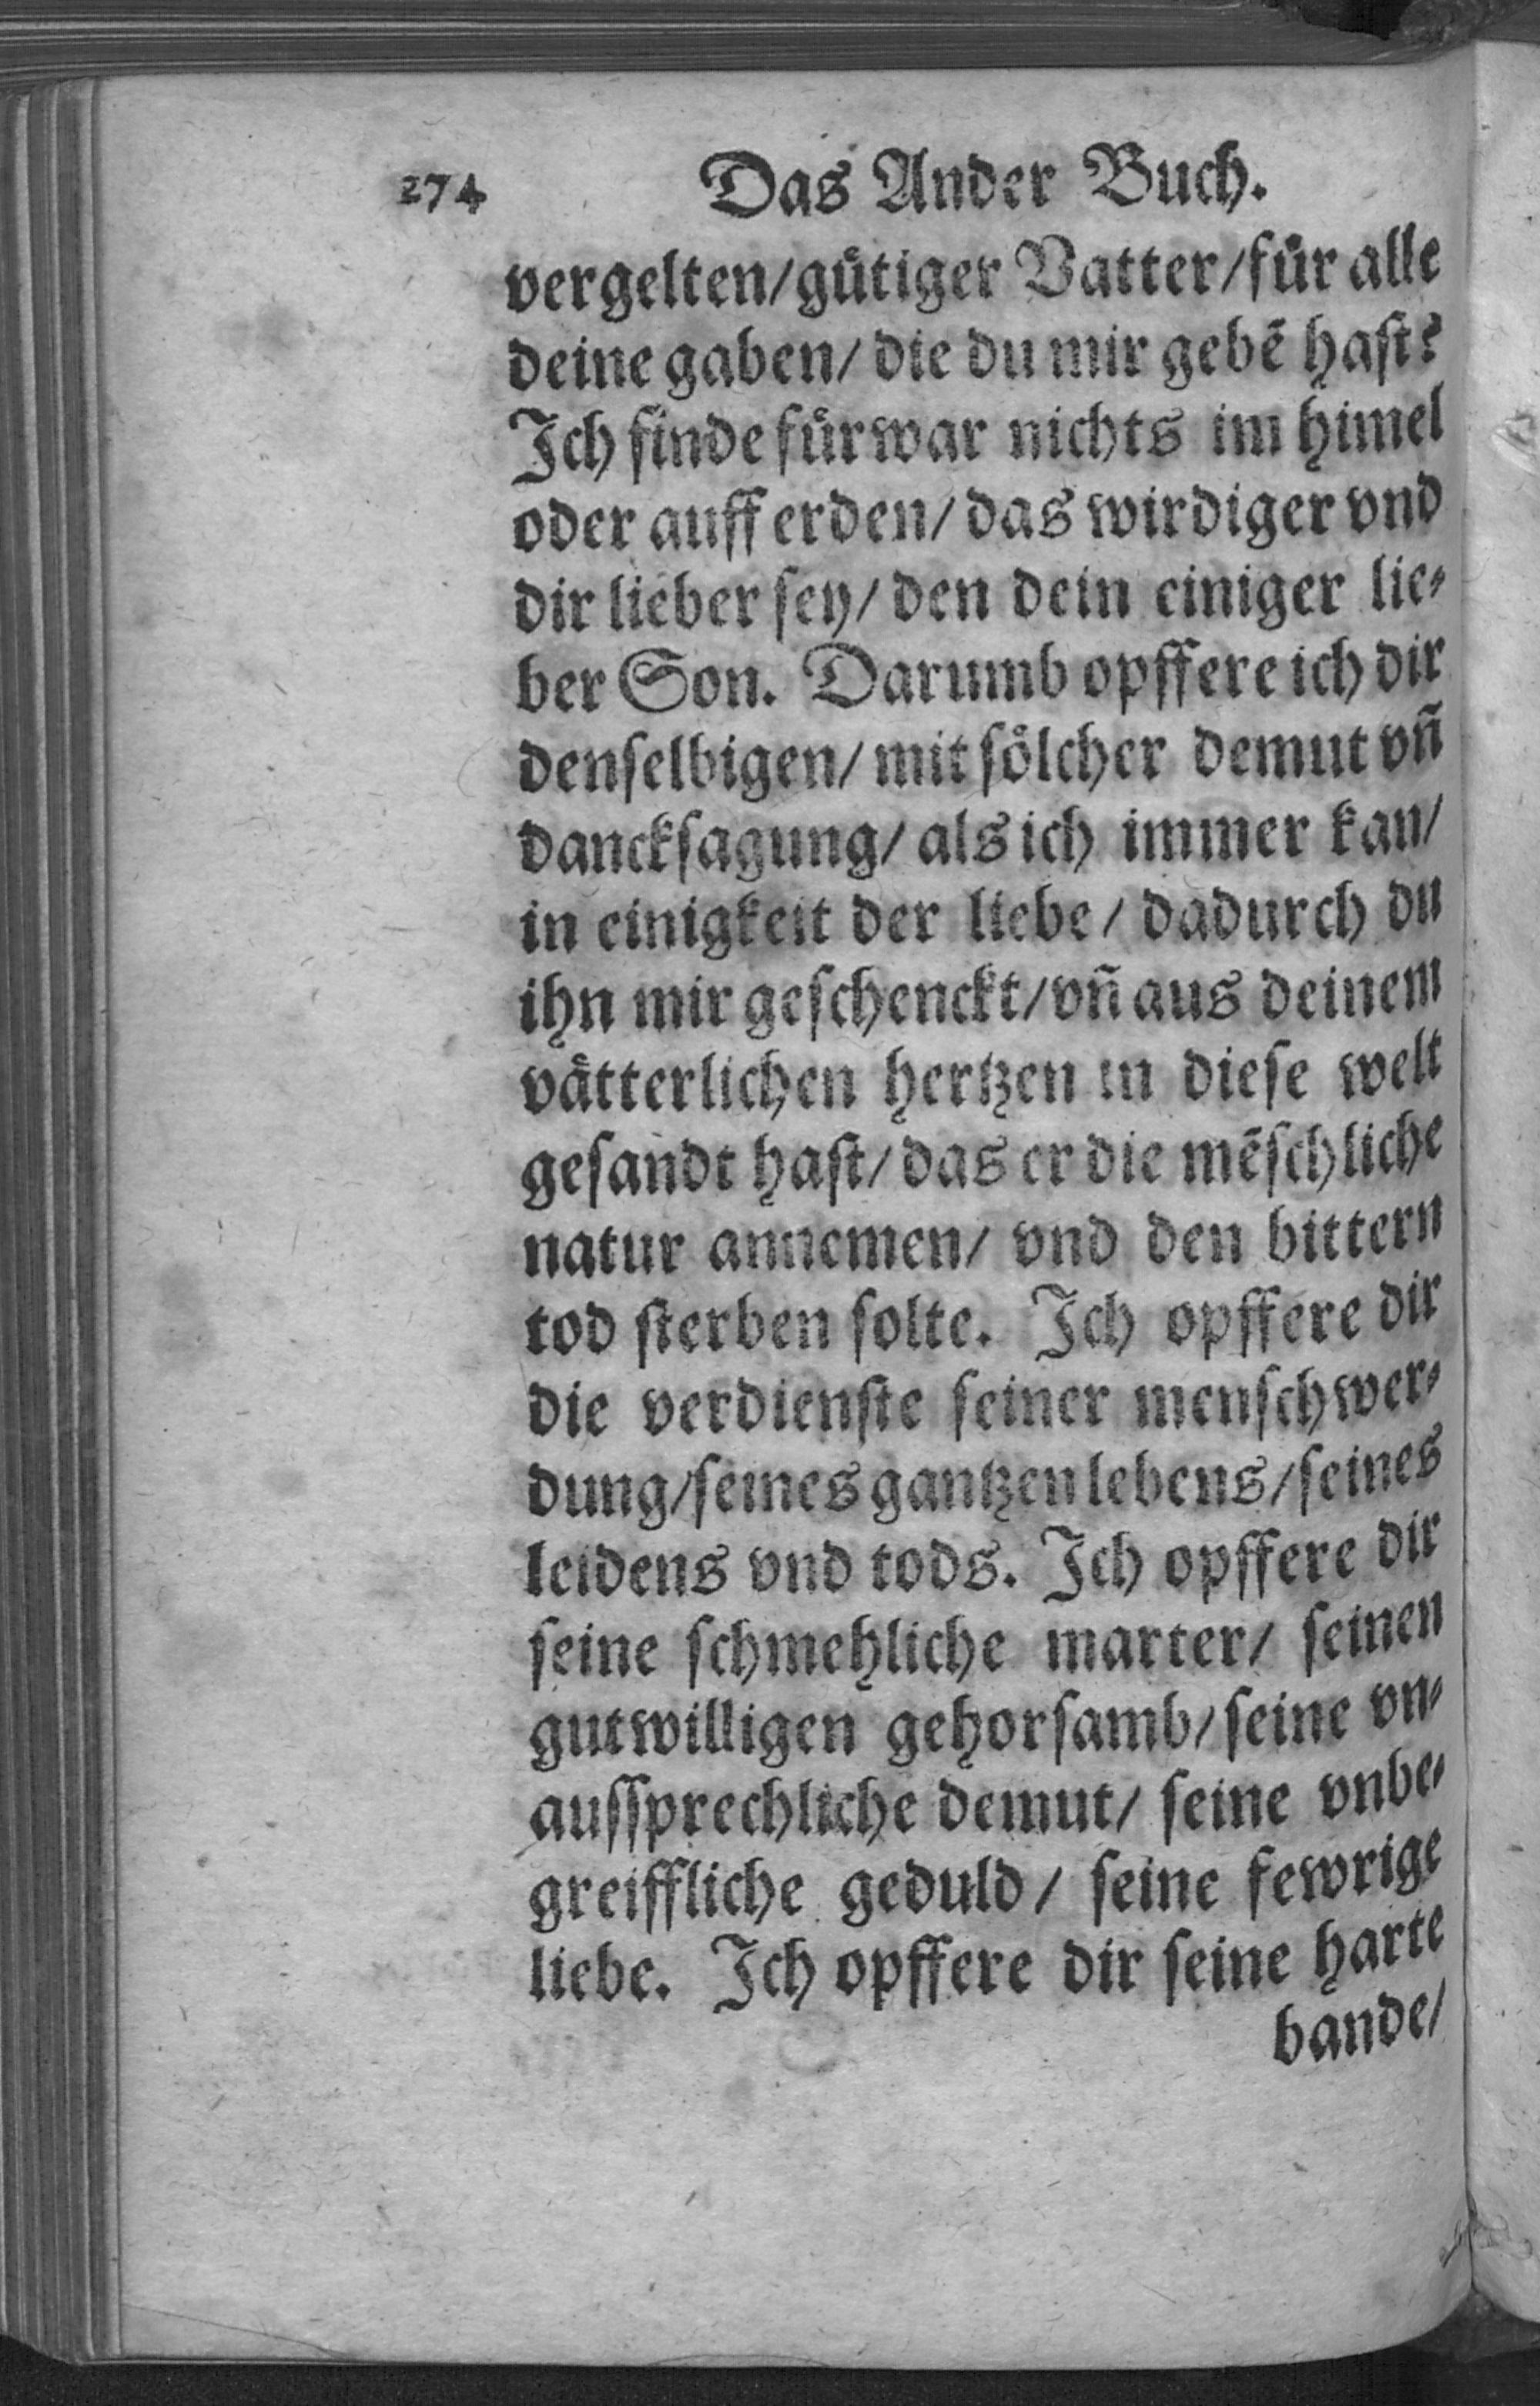 274 Das Ander Buch.
vergelten/gütiger Vatter/für alle
deine gaben/ die du mir gebē hast?
Ich finde fürwar nichts im himel
oder auff erden/ das wirdiger vnd
dir lieber sey/ den dein einiger lie-
ber Son. Darumb opffere ich dir
denselbigen/ mit sölcher demut vñ
dancksagung/ als ich immer kan/
in einigkeit der liebe/ dadurch du
ihn mir geschenckt/vñ aus deinem
vätterlichen hertzen in diese welt
gesandt hast/ das er die mēschliche
natur annemen/ vnd den bittern
tod sterben solte. Ich opffere dir
die verdienste seiner menschwer-
dung/seines gantzen lebens/seines
leidens vnd tods. Ich opffere dir
seine schmehliche marter/ seinen
gutwilligen gehorsamb/seine vn-
aussprechliche demut/ seine vnbe-
greiffliche geduld/ seine fewrige
liebe. Ich opffere dir seine harte
bande/